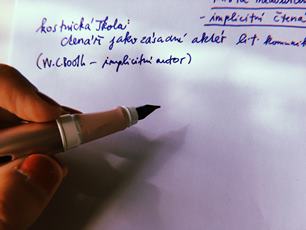 - implicitní čtená
kostnická škola:
čtenář jako zásadní aktér lit. komunik
(W. C. Booth - implicitní autor)